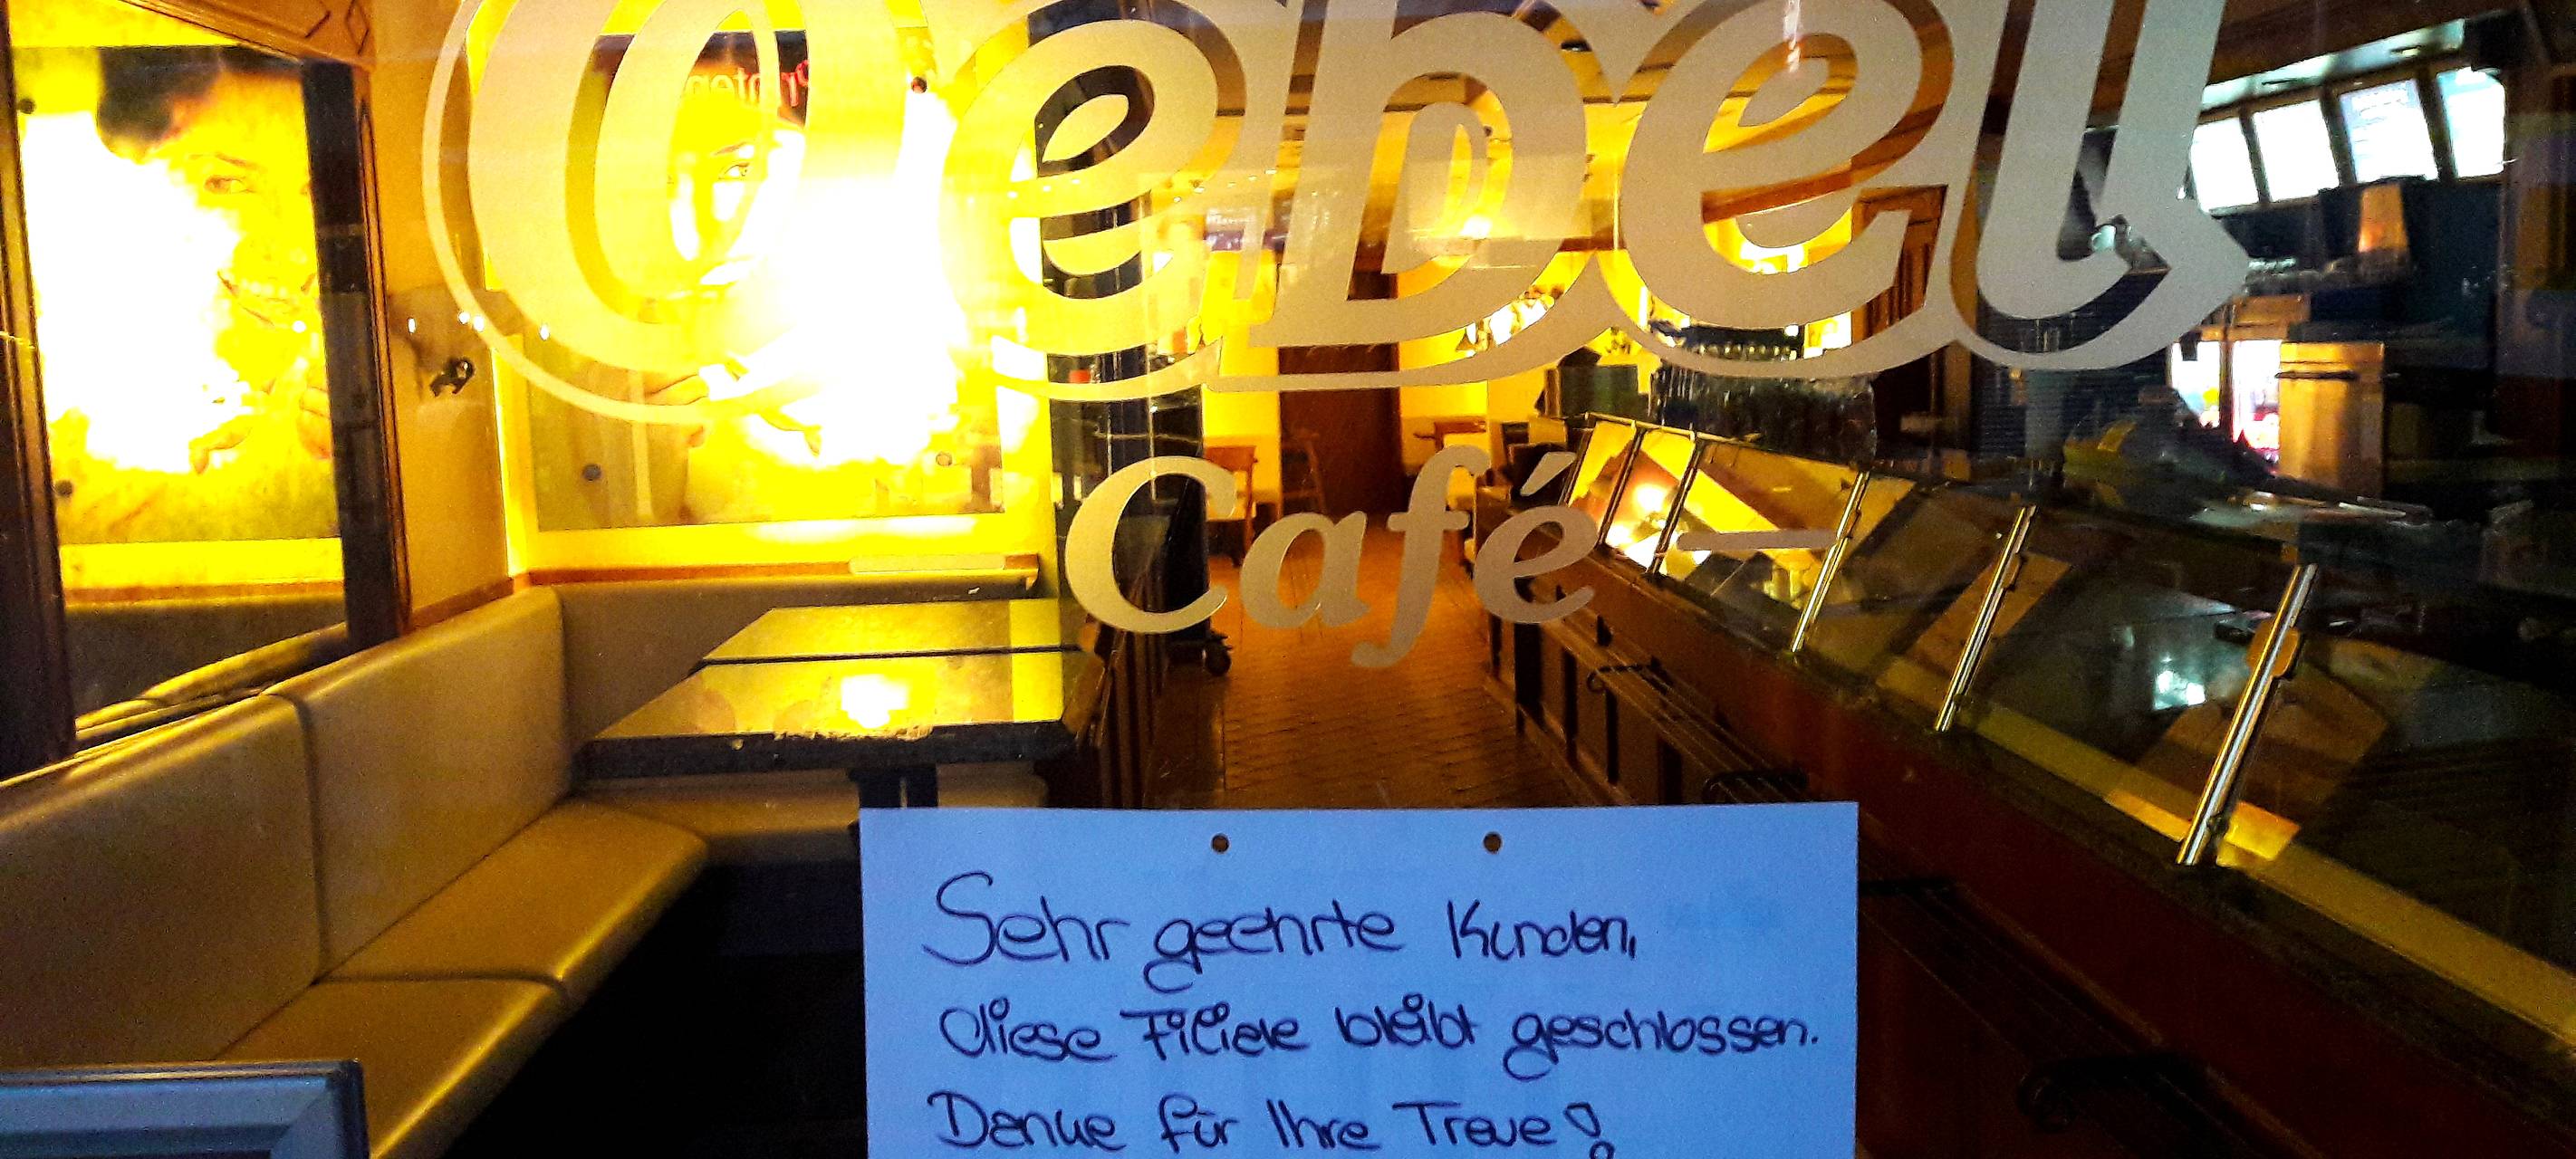 Oebel
Café
Sehr geehrte Kunden,
diese Filiale bleibt geschlossen.
Danke für Ihre Treue!